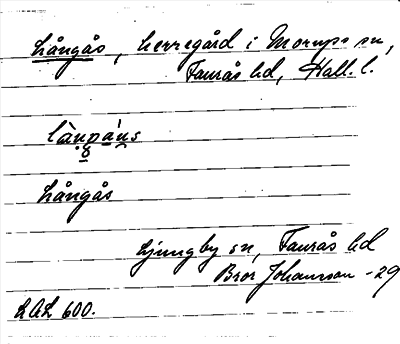 Långås, herregård i Morups sn,
Faurås hd, Hall. l.
Långås
Ljungby sn, Faurås hd
Bror Johansson -29
LAL 600.